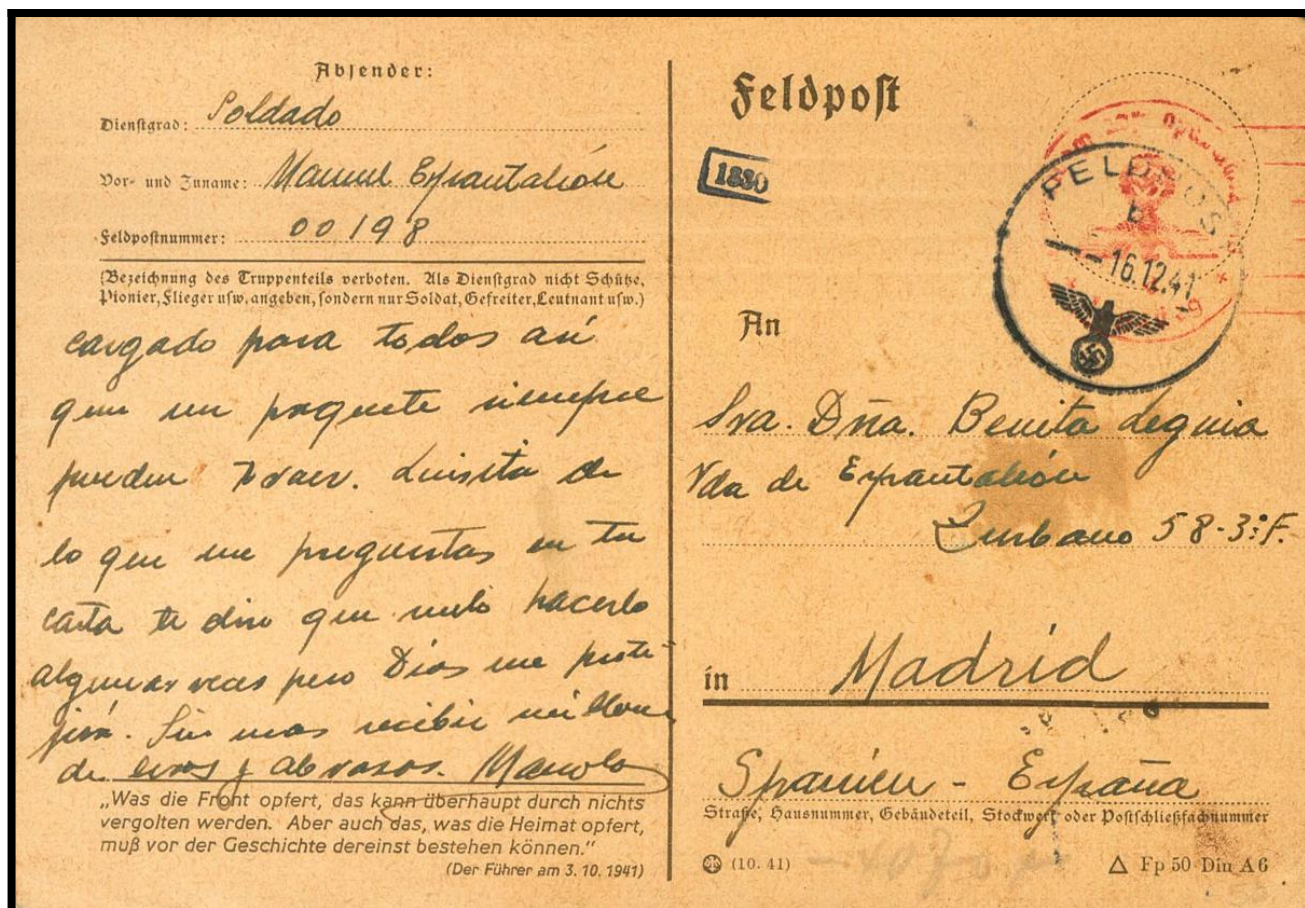 Absender:
Dienstgrad: Soldado
Vor- und Zuname: Manuel Espantaleón
Feldpostnummer: 00198
(Bezeichnung des Truppenteils verboten. Als Dienstgrad nicht Schütze,
Pionier, Flieger usw. angeben, sondern nur Soldat, Gefreiter, Leutnant usw.)
cargado para todos así
que un paquete siempre
pueden traer. Luisita de
lo que me preguntas en tu
carta te digo que suelo hacerlo
algunas veces pero Dios me prote-
jerá. Sin mas recibir millones
de besos y abrazos. Manolo
„Was die Front opfert, das kann überhaupt durch nichts
vergolten werden. Aber auch das, was die Heimat opfert,
muß vor der Geschichte dereinst bestehen können.“
(Der Führer am 3. 10. 1941)
Feldpost
1880
FELDPOST
b
16.12.41
An
Sra. Dña. Benita Leguia
Vda de Espantaleón
Zurbano 58-3º F.
in Madrid
Spanien - España
Straße, Hausnummer, Gebäudeteil, Stockwerk oder Postschließfachnummer
(10. 41)
Fp 50 Din A6